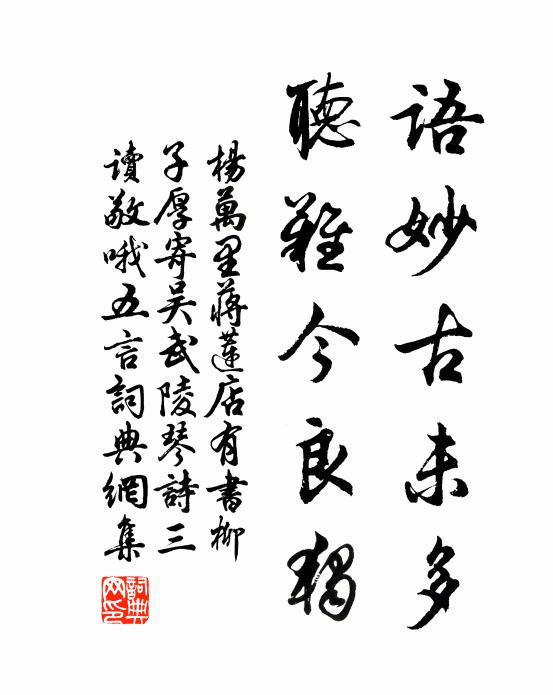 語妙古未多
聽難今良獨
楊萬里蔣蓮店有書柳
子厚寄吳武陵琴詩三
讀敬哦五言詞典網集
詞典